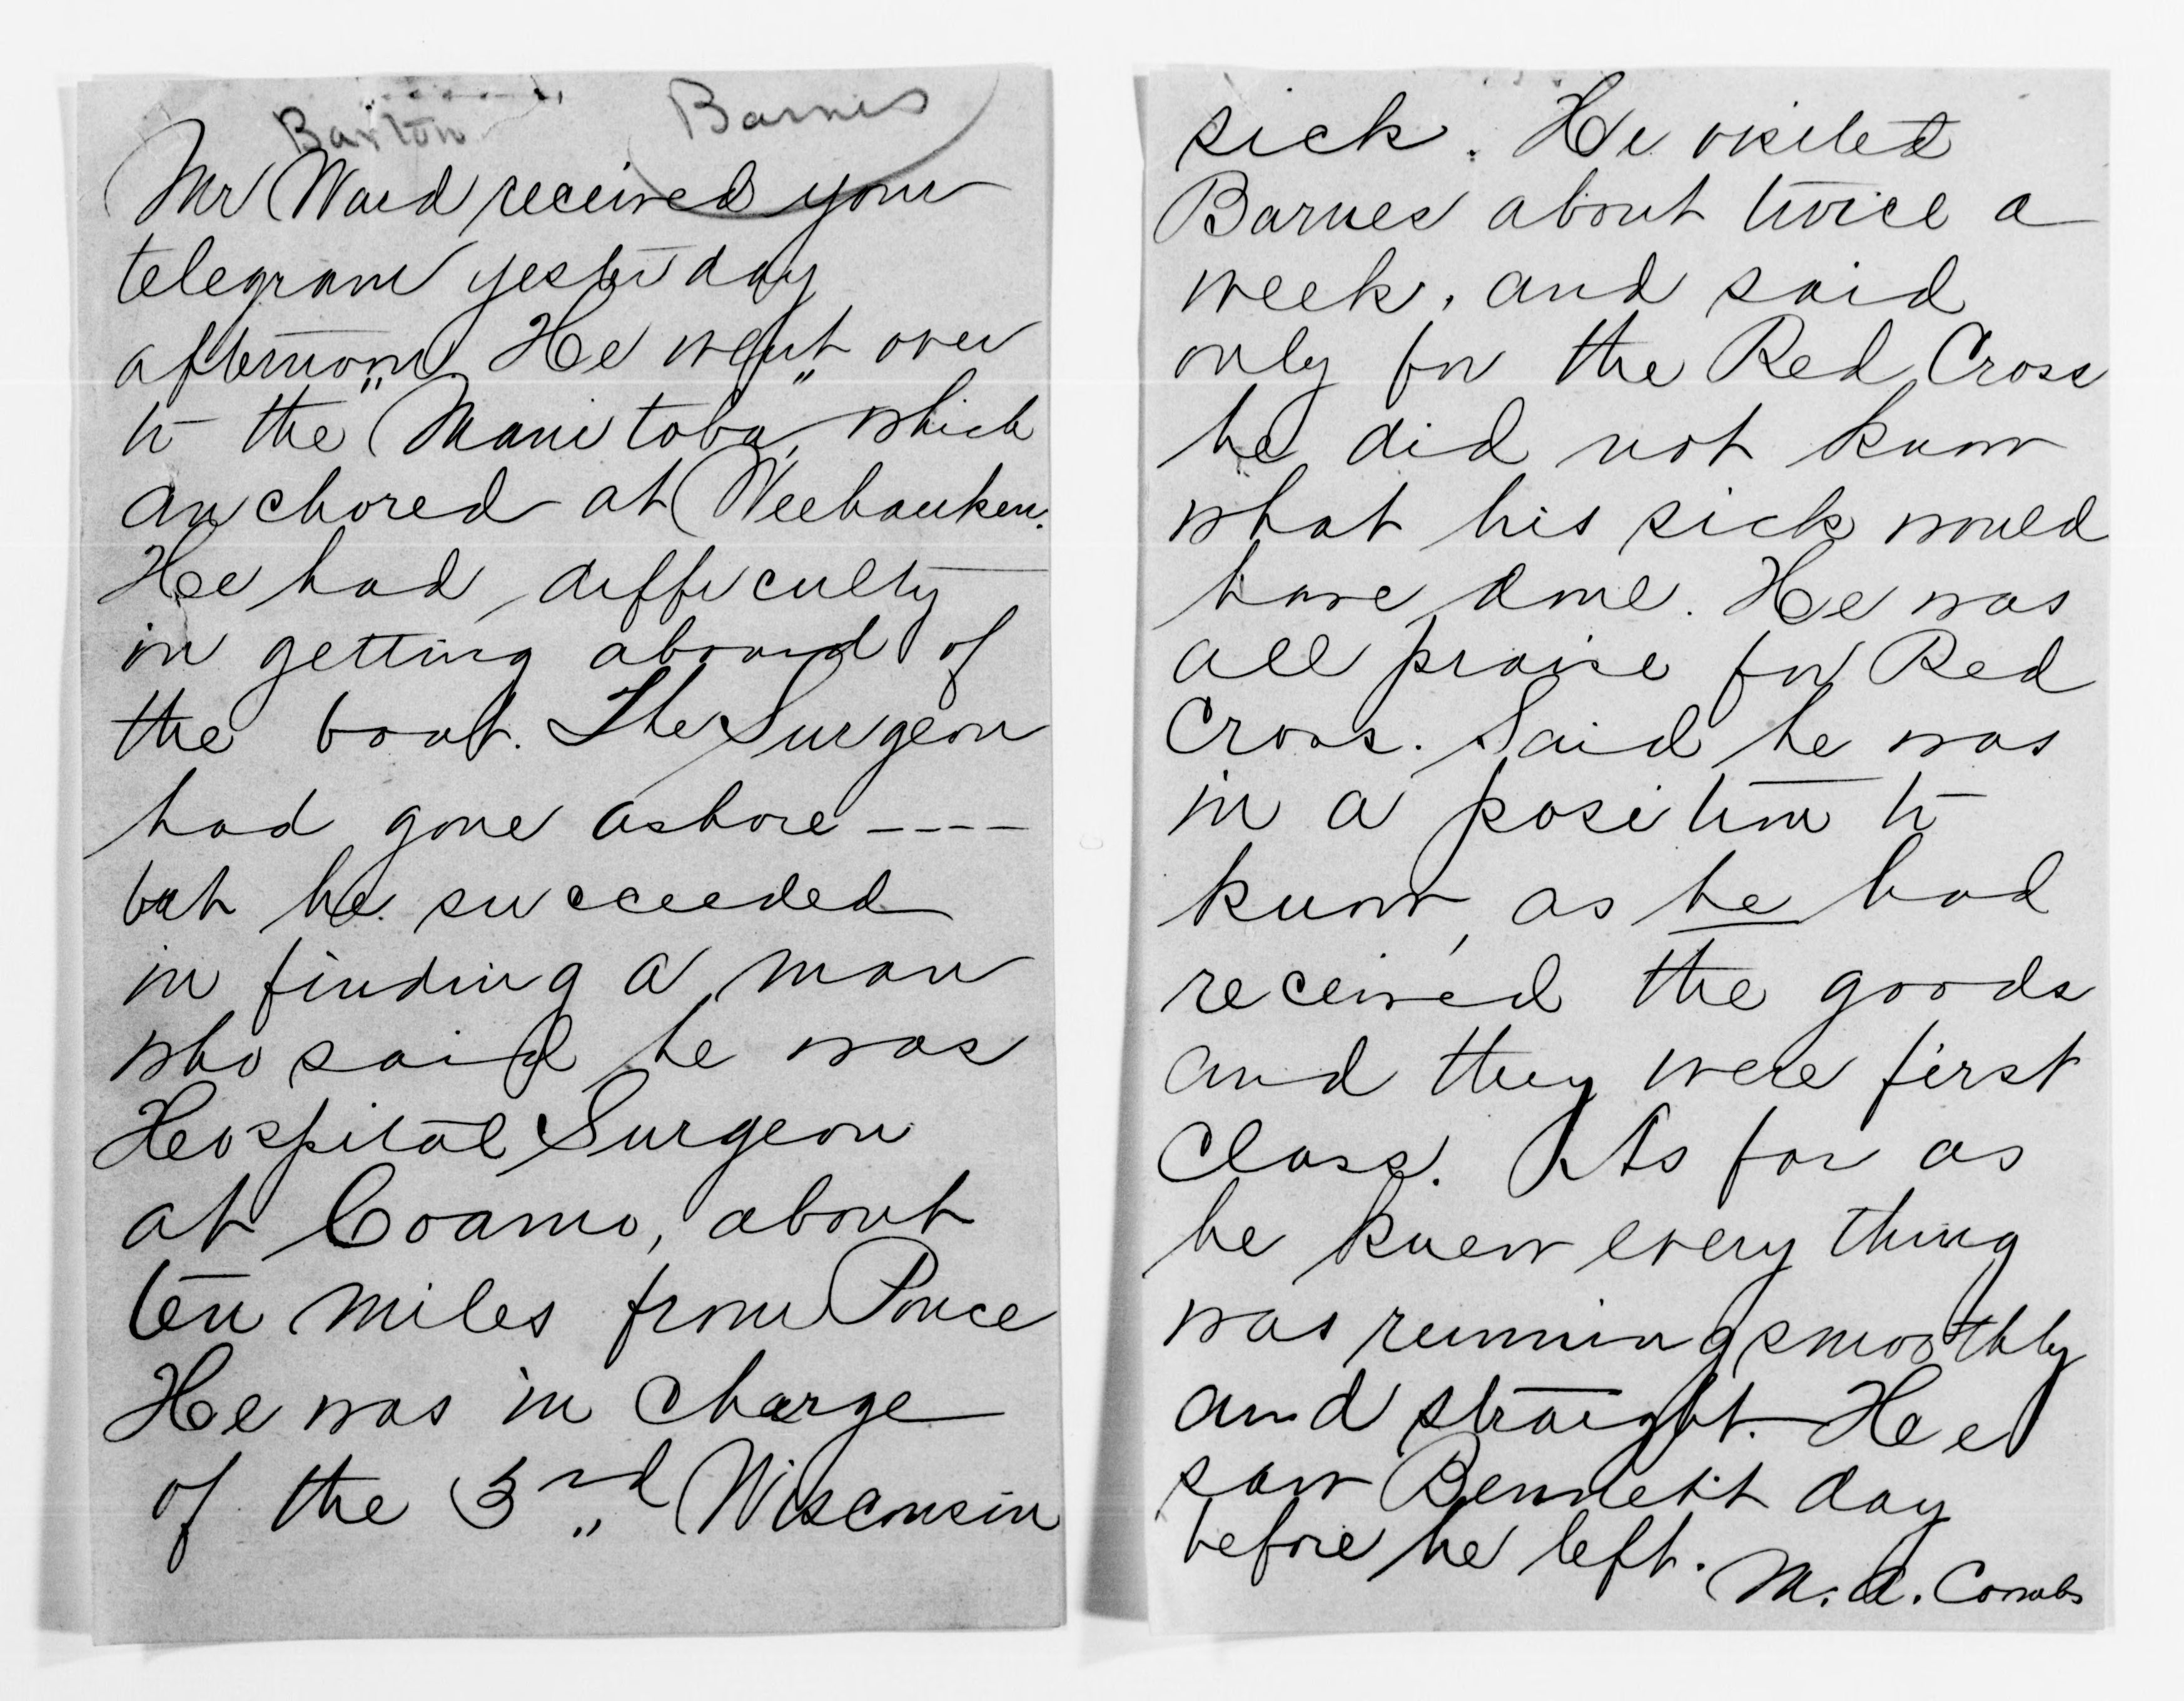 Barton
Barnes
Mr Ward received your
telegram yesterday
afternoon. He went over
to the "Manitoba", which
anchored at Weehauken.
He had difficulty
in getting aboard of
the boat. The Surgeon
had gone ashore ----
but he succeeded
in finding a man
who said he was
Hospital Surgeon
at Coamo, about
ten miles from Ponce
He was in charge
of the 3rd Wisconsin
sick. He visited
Barnes about twice a
week, and said
only for the Red Cross
he did not know
what his sick would
have done. He was
all praise for Red
Cross. Said he was
in a position to
know, as he had
received the goods
and they were first
class. As far as
he knew every thing
was running smoothly
and straight. He
saw Bennett day
before he left.
M. A. Combs